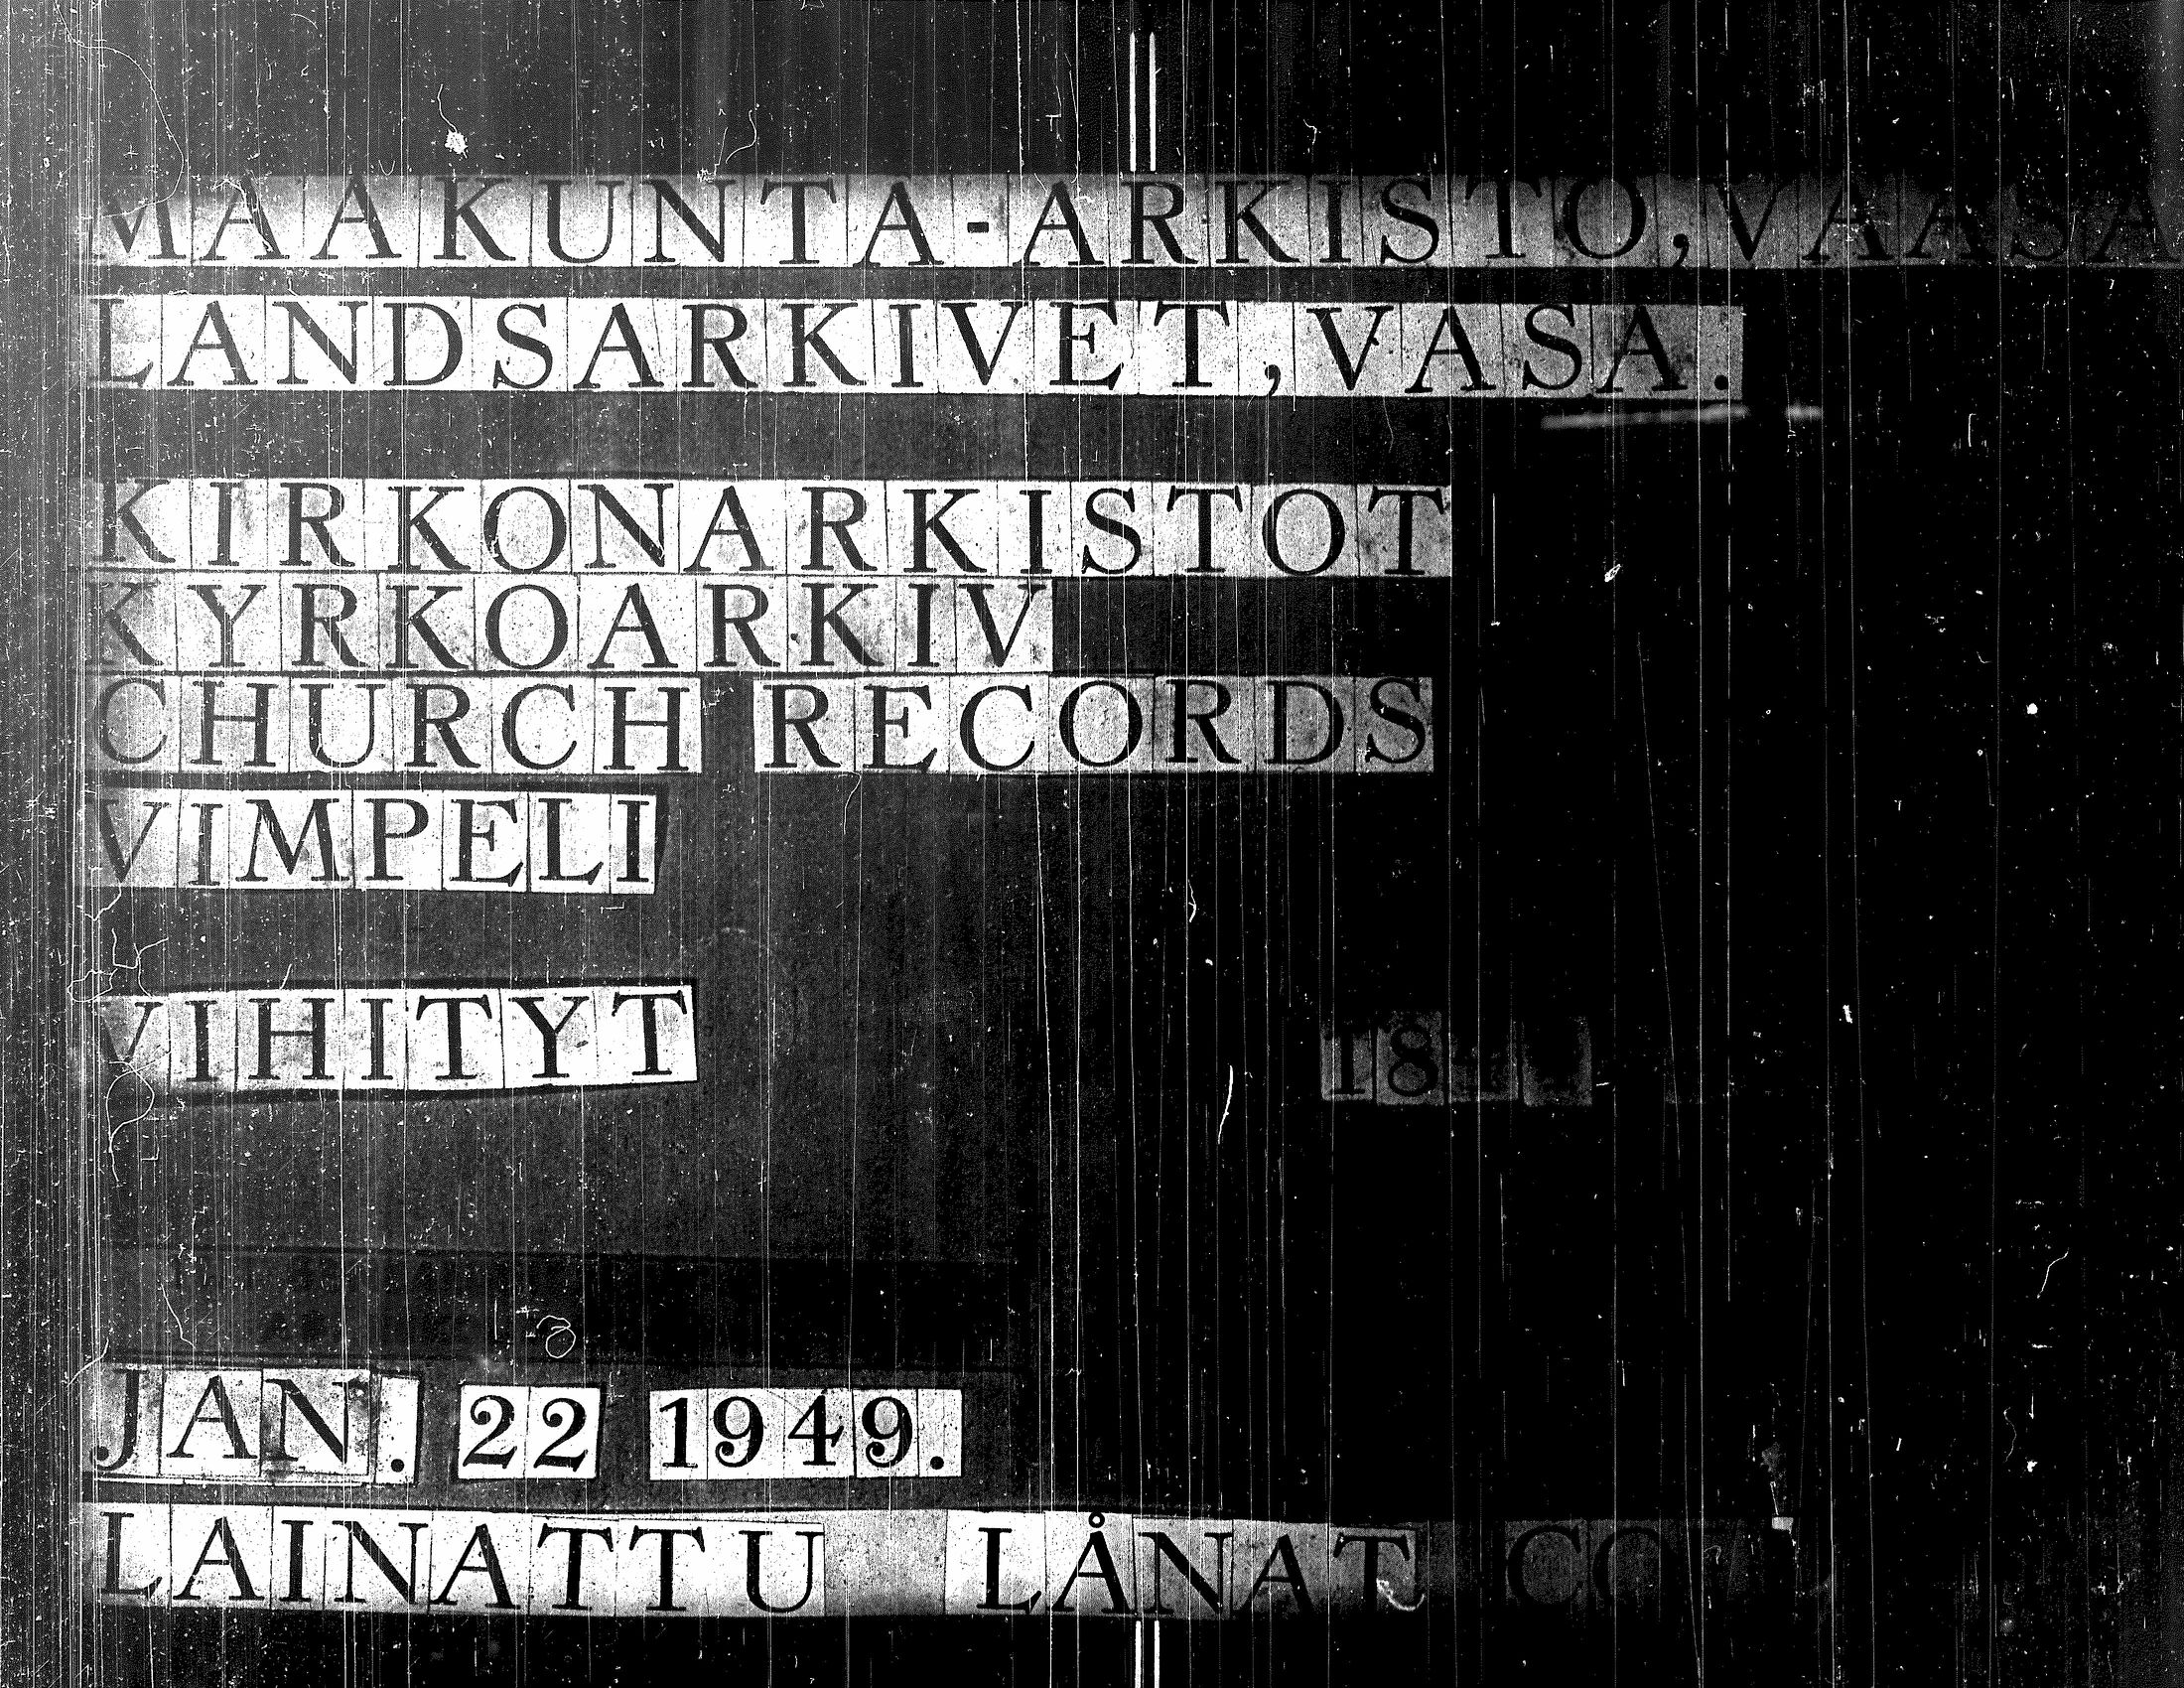 MAAKUNTA-ARKISTO, VAASA
LANDSARKIVET, VASA.
KIRKONARKISTOT
KYRKOARKIV
CHURCH RECORDS
VIMPELI
VIHITYT
JAN. 22 1949.
LAINATTU LÅNAT